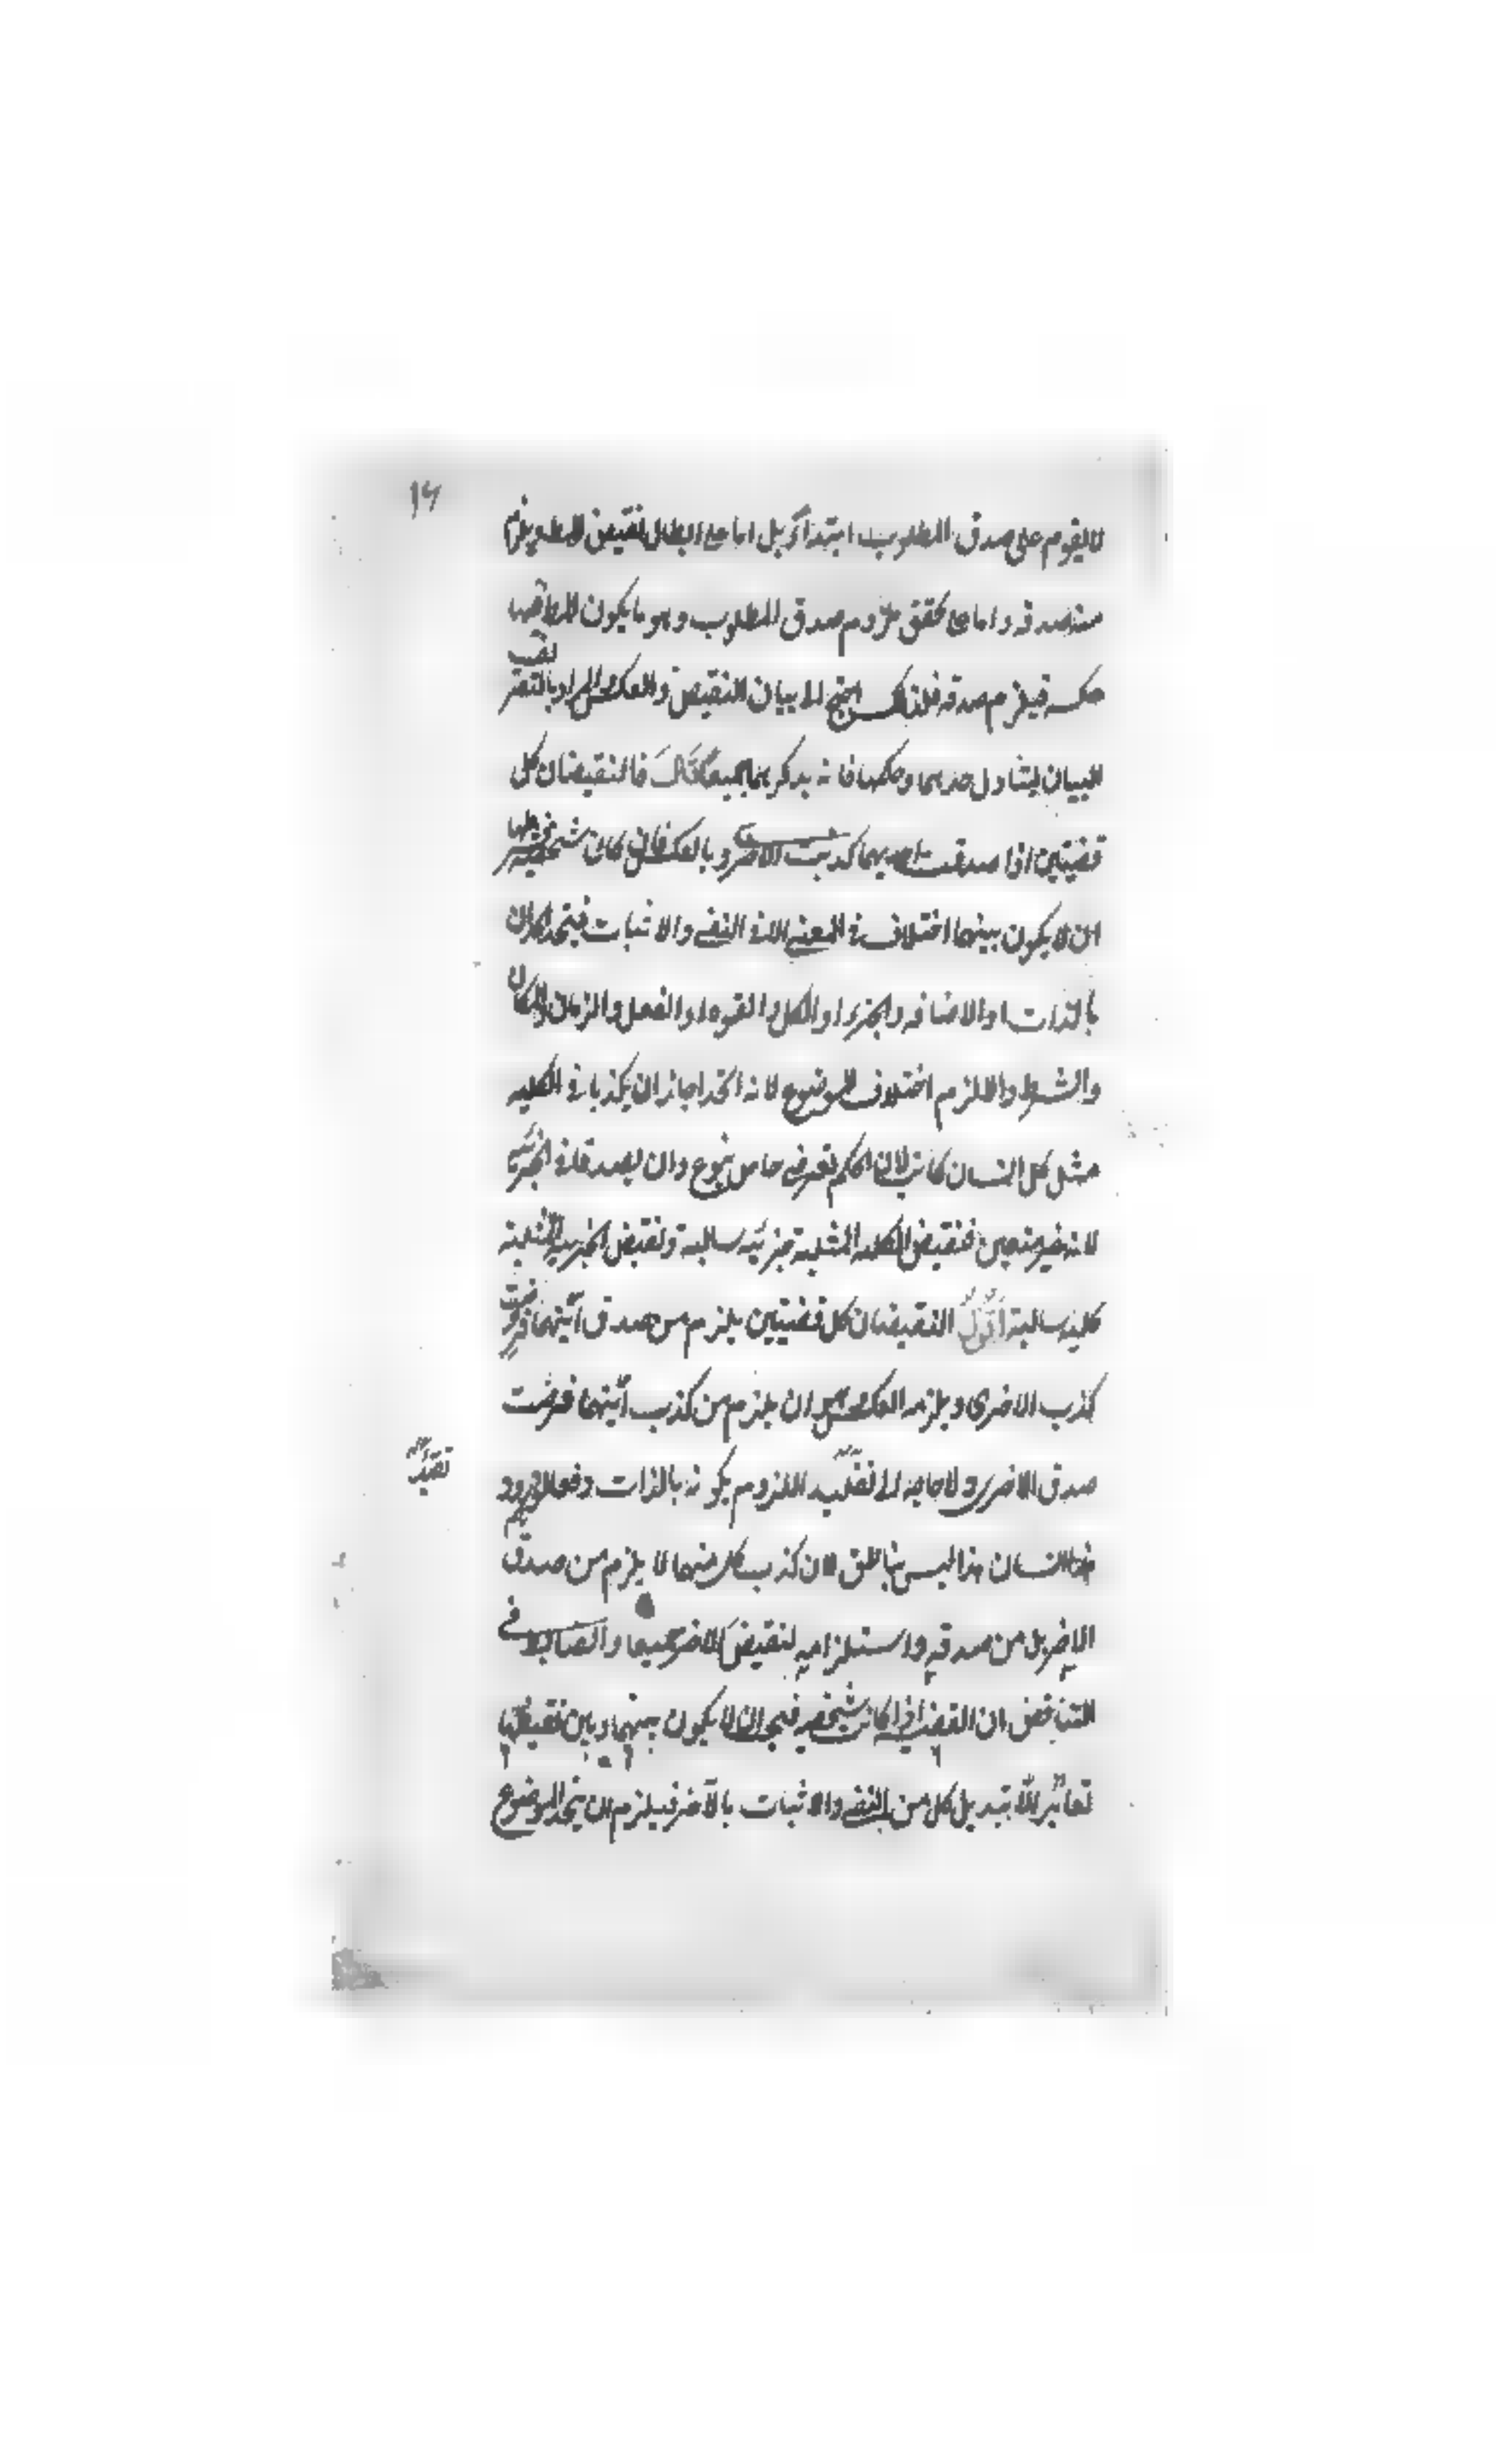 ١٦
لا يقوم على صدق المطلوب ابتداء بل اما على ابطال نقيض المطلوب فيلزم
منه صدقه واما على تحقق ملزوم صدق المطلوب وهو ما يكون المطلوب
عكسه فيلزم صدقه فلذلك احتيج الى بيان النقيض والعكس المراد بالتعريف
البيان ليتناول حدهما وحكمها فانه يذكرهما جميعا قال فالنقيضان كل
قضيتين اذا صدقت احديهما كذبت الاخرى وبالعكس فان كان شخصية
ان لا يكون بينهما اختلاف في المعنى الا في النفي والاثبات فيتحدان
بالذات والاضافه والجزء او الكل والقوه او الفعل والزمان والمكان
والشرط والا لزم اختلاف الموضوع لانه اتحدا جاز ان يكذبا في الكليه
مثل كل انسان كاتب لان الحكم بعرضي خاص بنوع وان يصدقا في الجزئية
لانه غير متعين فنقيض الكليه المثبتة جزئيه سالبة ونقيض الجزئيه المثبتة
كليه سالبة اقول النقيضان كل قضيتين يلزم من صدق أيتهما فرضت
كذب الاخرى ويلزمه العكس ان يلزم من كذب أيتهما فرضت
صدق الاخرى ولا حاجه الى تقييد اللزوم بكونه بالذات دفعا لورود
هذا انسان هذا ليس بناطق لان كذب كل منهما لا يلزم من صدق
الاخر بل من صدقه واستلزامه لنقيض الاخر جميعا والضابط في
التناقض ان القضية اذا كانت شخصيه فيجب ان لا يكون بينهما وبين نقيضها
تغاير الا بتبديل كل من النفي والاثبات بالآخر فيلزم ان يتحد الموضوع